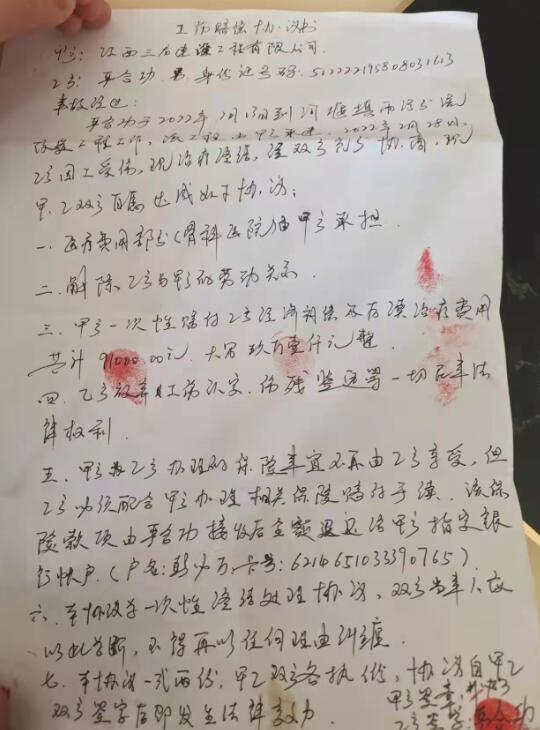 工伤赔偿协议书
甲方: 江西三石建设工程有限公司.
乙方: 平合功. 男. 身份证号码: 512222195808031613
事故经过:
平合功于2022年2月13日到河堰镇雨污分流
改造工程工作, 该工程由甲方承建. 2022年2月28日,
乙方因工受伤, 现治疗终结, 经双方充分协商, 现
甲. 乙双方自愿达成如下协议:
一. 医疗费用部分(骨科医院)由甲方承担.
二. 解除乙方与甲方的劳动关系.
三. 甲方一次性赔付乙方经济补偿及后续治疗费用
共计91000.00元. 大写玖万壹仟元整.
四. 乙方放弃其工伤认定. 伤残鉴定等一切后章法
律权利.
五. 甲方为乙方办理的保险事宜不再由乙方享受, 但
乙方必须配合甲方办理相关保险赔付手续. 该保
险款项由平合功接收后全额退还给甲方指定银
行帐户. (户名: 万. 卡号: 6214651033390765).
六. 本协议为一次性终结处理协议, 双方当事人应
以此为断, 不得再以任何理由纠缠.
七. 本协议一式两份, 甲乙双方各执一份, 协议自甲乙
双方签字后即发生法律效力.
甲方签章:
乙方签字: 平合功